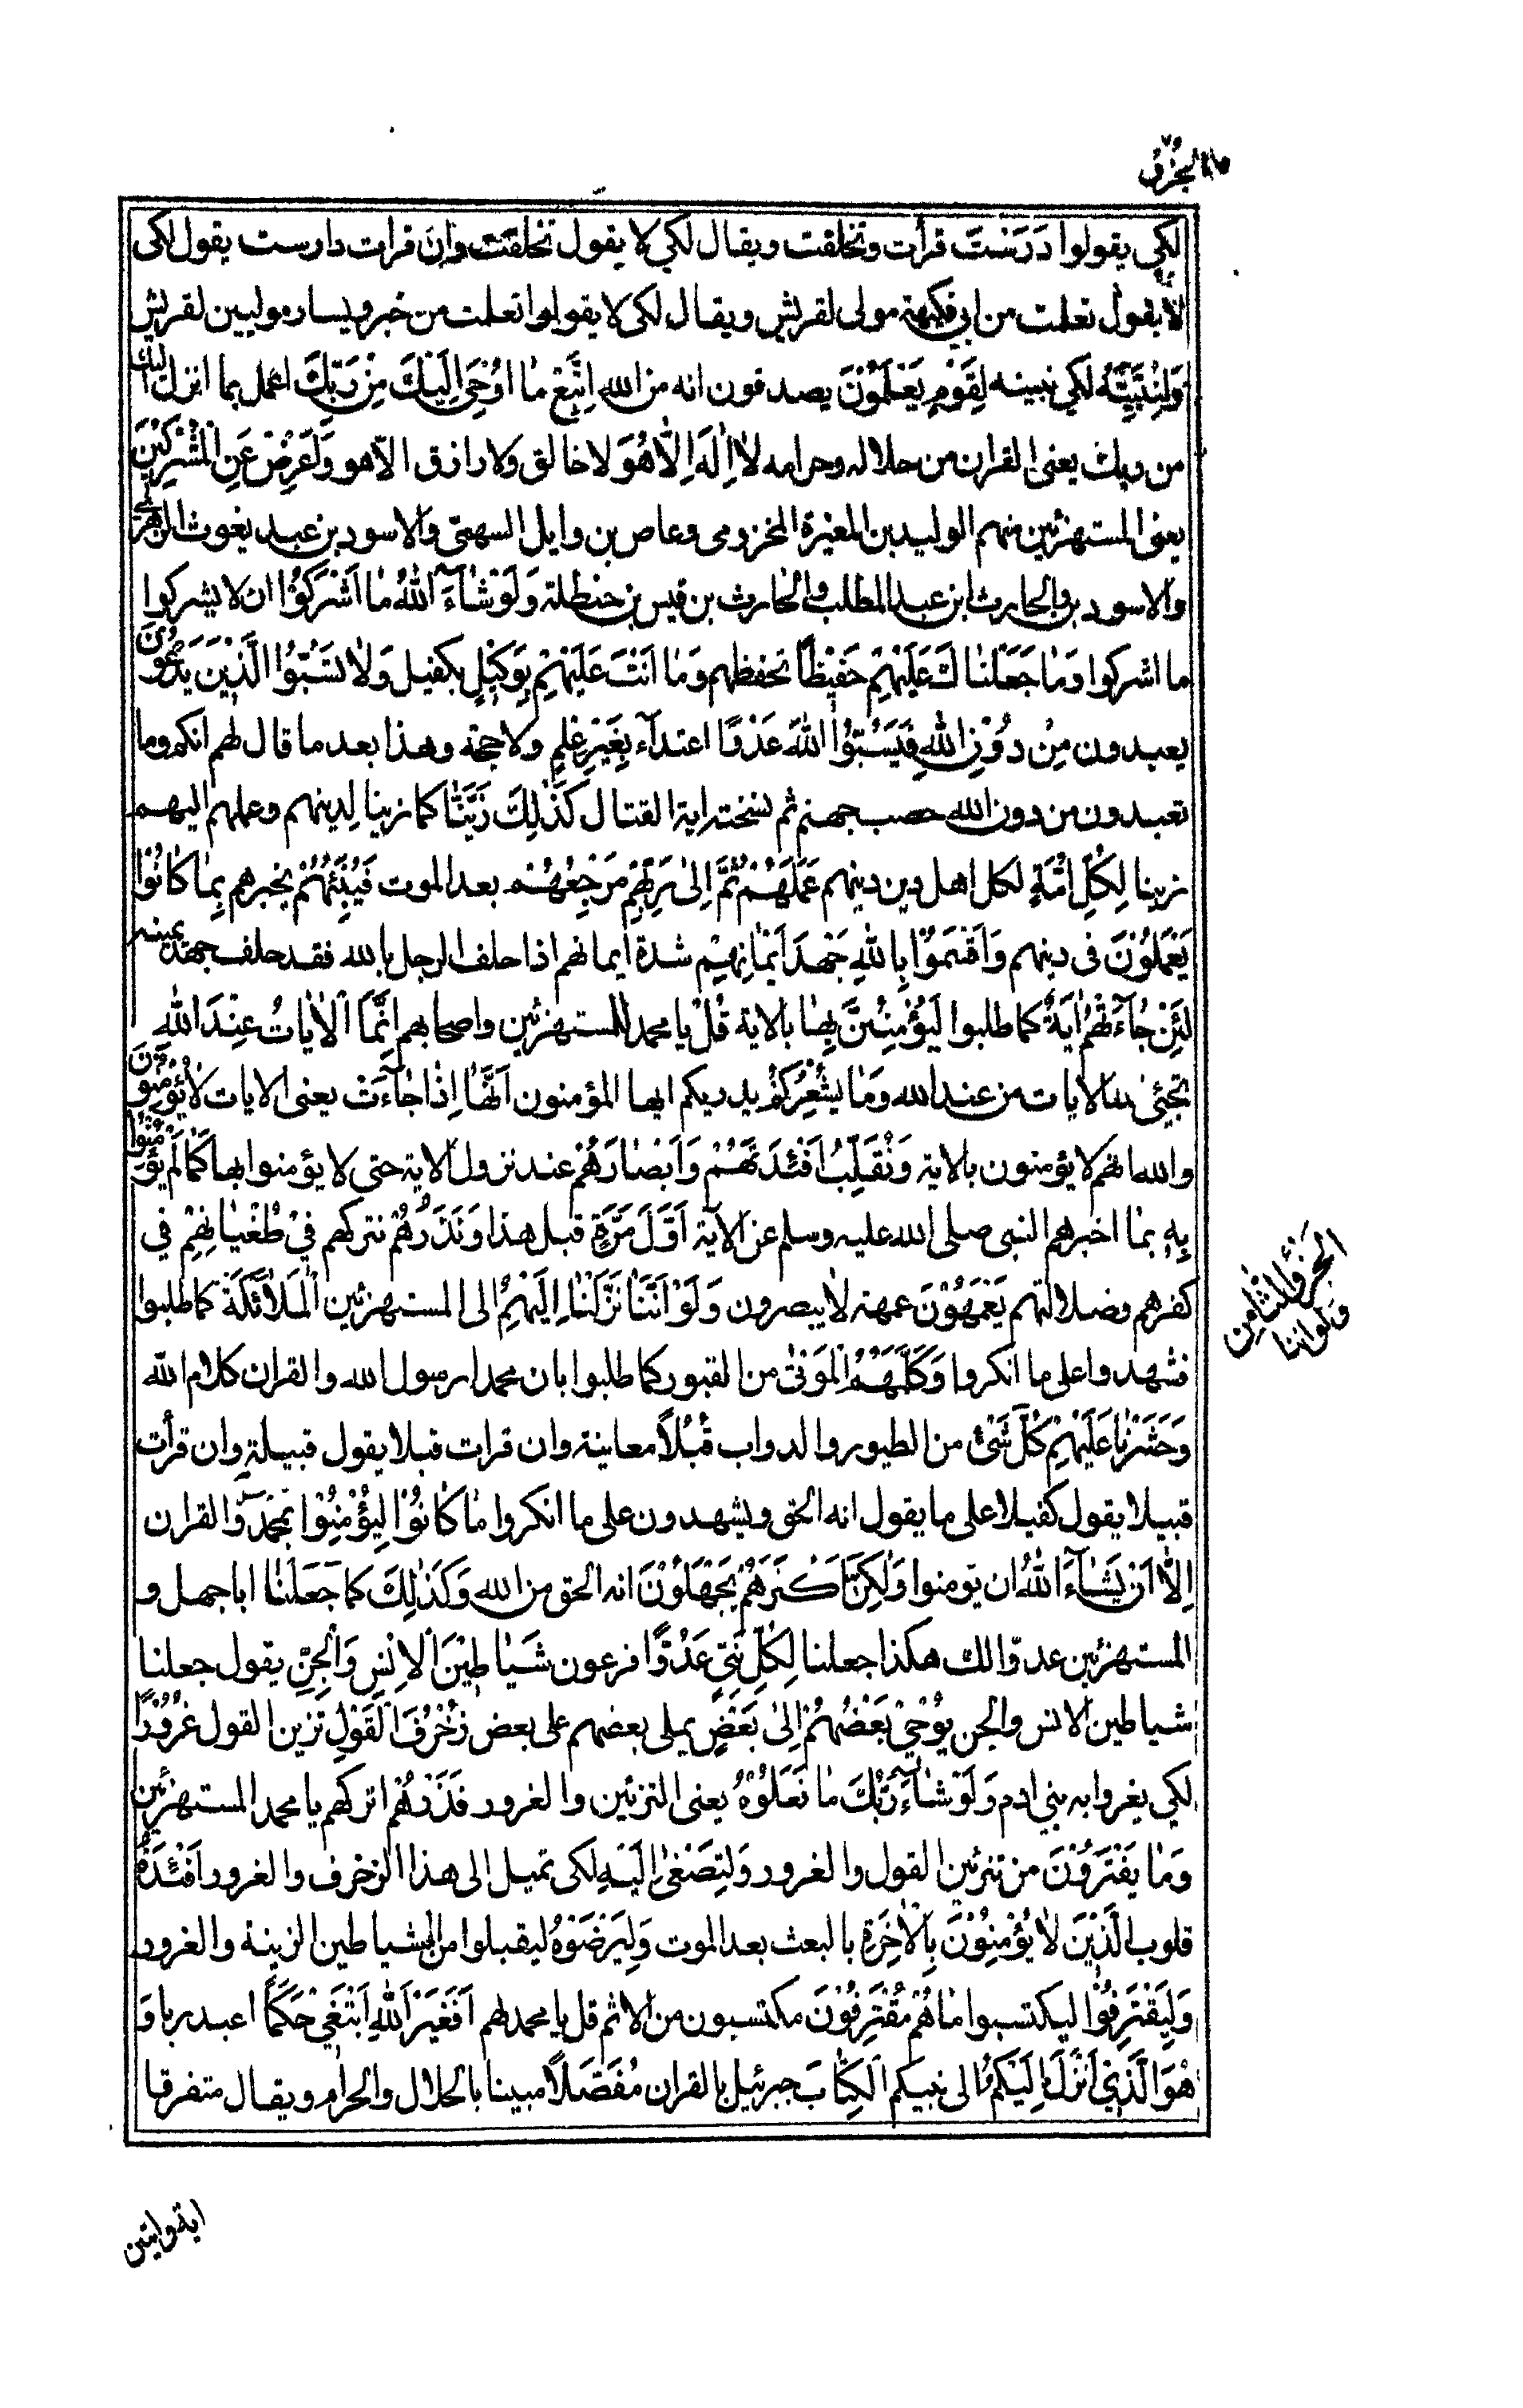 الجزؤ
لكي يقولوا دَرَسْتَ قرأت وتخلقت ويقال لكي لا يقول تخلقت وان قرات دارست يقول لكى
لا يقول تعلمت من ابي فكيهة مولى لقريش ويقال لكى لا يقولوا تعلمت من خبر ويسار موليين لقريش
وَلِنُبَيِّنَهُ لكي نبينه لِقَوْمٍ يَعْلَمُوْنَ يصدقون انه من الله اِتَّبِعْ مٰا اُوْحِىَ اِلَيْكَ مِنْ رَبِّكَ اعمل بما انزل اليك
من ربك يعنى القران من حلاله وحرامه لاٰ اِلٰهَ اِلاّٰ هُوَ لا خالق ولا رازق الاّ هو وَاَعْرِضْ عَنِ الْمُشْرِكِيْنَ
يعنى المستهزئين منهم الوليد بن المغيرة المخزومى وعاص بن وايل السهمّى والاسود بن عبد يغوث الزهرى
والاسود بن الحارث ابن عبد المطلب والحارث بن قيس بن حنظلة وَلَوْ شٰاۤءَ اللهُ مٰا اَشْرَكُوْا ان لا يشركوا
ما اشركوا وَمٰا جَعَلْنٰاكَ عَلَيْهِمْ حَفِيْظًا تحفظهم وَمٰا اَنْتَ عَلَيْهِمْ بِوَكِيْلٍ بكفيل وَلاٰ تَسُبُّوْا الَّذِيْنَ يَدْعُوْنَ
يعبدون مِنْ دُوْنِ اللهِ فَيَسُبُّوْا اللهَ عَدْوًا اعتداۤء بِغَيْرِ عِلْمٍ ولا حجة وهذا بعد ما قال لهم انكم وما
تعبدون من دون الله حصب جهنم ثم نسخته اية القتال كَذٰلِكَ زَيَّنّٰا كما زينا لدينهم وعملهم اليهم
زينا لِكُلِّ اُمَّةٍ لكل اهل دين دينهم عَمَلَهُمْ ثُمَّ اِلىٰ رَبِّهِمْ مَرْجِعُهُمْ بعد الموت فَيُنَبِّئُهُمْ يخبرهم بِمٰا كٰانُوْا
يَعْمَلُوْنَ فى دينهم وَاَقْسَمُوْا بِاللهِ جَهْدَ اَيْمٰانِهِمْ شدة ايمانهم اذا حلف الرجل بالله فقد حلف جهد يمينه
لَئِنْ جٰاۤءَتْهُمْ اٰيَةٌ كما طلبوا لَيُؤْمِنُنَّ بِهٰا بالاية قُلْ يا محمد للمستهزئين واصحابهم اِنَّمَا الْاٰيٰاتُ عِنْدَ اللهِ
تجيئ الايات من عند الله وَمٰا يُشْعِرُكُمْ يدريكم ايها المؤمنون اَنَّهٰا اِذٰا جٰاۤءَتْ يعنى الايات لاٰ يُؤْمِنُوْنَ
والله انهم لا يؤمنون بالاية وَنُقَلِّبُ اَفْئِدَتَهُمْ وَاَبْصٰارَهُمْ عند نزول الاية حتى لا يؤمنوا بها كَمٰا لَمْ يُؤْمِنُوْا
بِهٖ بما اخبرهم النبى صلى الله عليه وسلم عن الآية اَوَّلَ مَرَّةٍ قبل هذا وَنَذَرُهُمْ نتركهم فِيْ طُغْيٰانِهِمْ في
كفرهم وضلالتهم يَعْمَهُوْنَ عمهة لا يبصرون وَلَوْ اَنَّنٰا نَزَّلْنٰا اِلَيْهِمُ الى المستهزئين الْمَلاٰئِكَةَ كما طلبوا
الجزؤ الثامن
ولواننا
فشهدوا على ما انكروا وَكَلَّمَهُمُ الْمَوْتىٰ من القبور كما طلبوا بان محمدا رسول الله والقران كلام الله
وَحَشَرْنٰا عَلَيْهِمْ كُلَّ شَيْئٍ من الطيور والدواب قُبُلاً معاينة وان قرات قبلا يقول قبيلة وان قرأت
قبيلا يقول كفيلا على ما يقول انه الحق ويشهدون على ما انكروا مٰا كٰانُوْا لِيُؤْمِنُوْا بمحمد والقران
اِلاّٰ اَنْ يَشٰاۤءَ اللهُ ان يومنوا وَلٰكِنَّ اَكْثَرَهُمْ يَجْهَلُوْنَ انه الحق من الله وَكَذٰلِكَ كما جَعَلْنٰا ابا جهل و
المستهزئين عدوّا لك هكذا جعلنا لِكُلِّ نَبِيٍّ عَدُوًّا فرعون شَيٰاطِيْنَ الْاِنْسِ وَالْجِنِّ يقول جعلنا
شياطين الانس والجن يُوْحِيْ بَعْضُهُمْ اِلىٰ بَعْضٍ يملى بعضهم على بعض زُخْرُفَ الْقَوْلِ تزين القول غُرُوْرًا
لكي يغروا به بني ادم وَلَوْ شٰاۤءَ رَبُّكَ مٰا فَعَلُوْهُ يعنى التزئين والغرور فَذَرْهُمْ اتركهم يا محمد المستهزئين
وَمٰا يَفْتَرُوْنَ من تزئين القول والغرور وَلِتَصْغىٰ اِلَيْهِ لكى تميل الى هذا الزخرف والغرور اَفْئِدَةُ
قلوب الَّذِيْنَ لاٰ يُؤْمِنُوْنَ بِالْاٰخِرَةِ بالبعث بعد الموت وَلِيَرْضَوْهُ ليقبلوا من الشياطين الزينة والغرور
وَلِيَقْتَرِفُوْا ليكتسبوا مٰا هُمْ مُقْتَرِفُوْنَ مكتسبون من الاثم قل يا محمد لهم اَفَغَيْرَ اللهِ اَبْتَغِيْ حَكَمًا اعبد ربا وَ
هُوَ الَّذِيْ اَنْزَلَ اِلَيْكُمُ الى نبيكم الْكِتٰابَ جبرئيل بالقران مُفَصَّلاً مبينا بالحلال والحرام ويقال متفرقا
اية وايتين